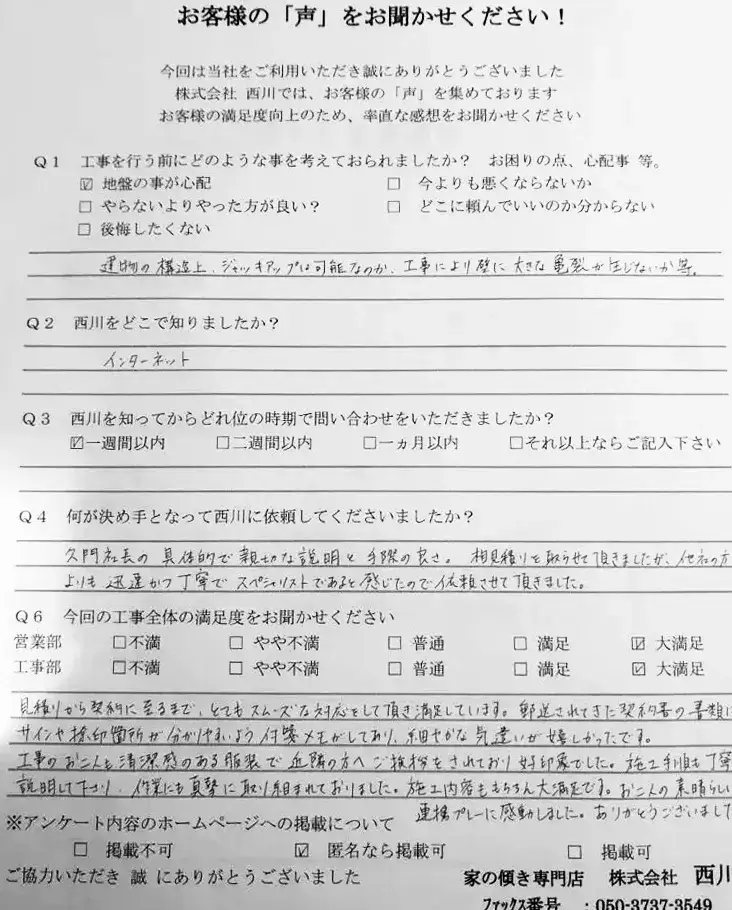 お客様の「声」をお聞かせください！
今回は当社をご利用いただき誠にありがとうございました
株式会社 西川では、お客様の「声」を集めております
お客様の満足度向上のため、率直な感想をお聞かせください
Q1 工事を行う前にどのような事を考えておられましたか？ お困りの点、心配事 等。
☑ 地盤の事が心配 □ 今よりも悪くならないか
□ やらないよりやった方が良い？ □ どこに頼んでいいのか分からない
□ 後悔したくない
建物の構造上、ジャッキアップは可能なのか、工事により壁に大きな亀裂が生じないか等。
Q2 西川をどこで知りましたか？
インターネット
Q3 西川を知ってからどれ位の時期で問い合わせをいただきましたか？
☑一週間以内 □二週間以内 □一ヵ月以内 □それ以上ならご記入下さい
Q4 何が決め手となって西川に依頼してくださいましたか？
久門社長の具体的で親切な説明と手際の良さ。相見積りを取らせて頂きましたが、他社の方
よりも迅速かつ丁寧でスペシャリストであると感じたので依頼させて頂きました。
Q6 今回の工事全体の満足度をお聞かせください
営業部 □不満 □ やや不満 □ 普通 □ 満足 ☑ 大満足
工事部 □不満 □ やや不満 □ 普通 □ 満足 ☑ 大満足
見積りから契約に至るまで、とてもスムーズな対応をして頂き満足しています。郵送されてきた契約書の書類に
サインや捺印箇所が分かりやすいよう付箋メモがしてあり、細やかな気遣いが嬉しかったです。
工事のお二人も清潔感のある服装で近隣の方へご挨拶をされており好印象でした。施工手順も丁寧
説明して下さり、作業にも真摯に取り組まれておりました。施工内容ももちろん大満足です。お二人の素晴らしい
連携プレーに感動しました。ありがとうございました
※アンケート内容のホームページへの掲載について
□ 掲載不可 ☑ 匿名なら掲載可 □ 掲載可
ご協力いただき 誠 にありがとうございました 家の傾き専門店 株式会社 西川
ファックス番号 ：050-3737-3549